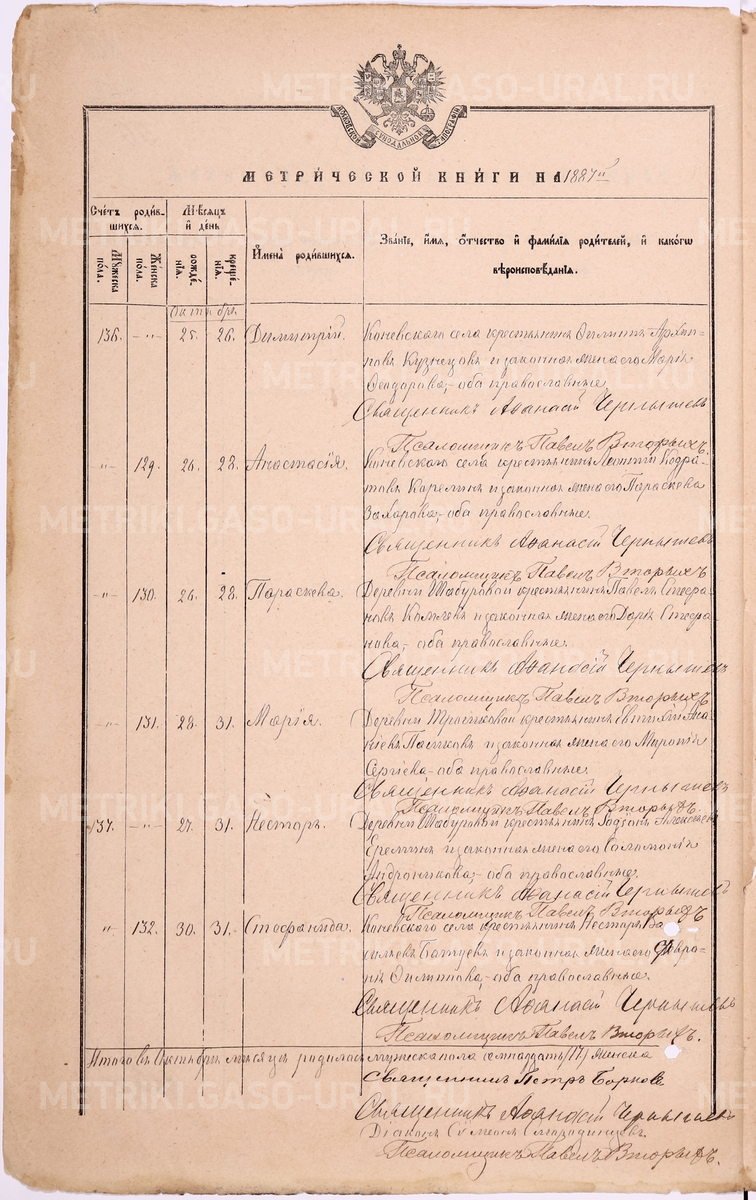 МЕТРИЧЕСКОЙ КНИГИ НА 1887й
Счетъ родив-
шихся.
Мѣсяцъ
и день
Имена родившихся.
Званіе, имя, отчество и фамилія родителей, и какогѡ
вѣроисповѣданія.
Мужеска
пола.
Женска
пола.
рожде-
нія.
креще-
нія.
Октябрь
136. -„- 25. 26. Димитрій. Коневскаго села крестьянинъ Филиппъ Архип-
повъ Кузнецовъ и законная жена его Марія
Ѳеодорова, оба православные.
Священникъ Аѳанасій Чернышевъ
Псаломщикъ Павелъ Вторыхъ.
-„- 129. 26. 28. Анастасія. Коневскаго села крестьянинъ Леонтій Кодра-
товъ Карелинъ и законная жена его Параскева
Захарова, оба православные.
Священникъ Аѳанасій Чернышевъ
Псаломщикъ Павелъ Вторыхъ
-„- 130. 26. 28. Параскева. Деревни Шабуровой крестьянинъ Павелъ Стефа-
новъ и законная жена его Дарія Стефа-
нова, оба православные.
Священникъ Аѳанасій Чернышевъ
Псаломщикъ Павелъ Вторыхъ
-„- 131. 28. 31. Марія. Деревни крестьянинъ Ана-
ніевъ Пашковъ и законная жена его
Сергіева оба православные.
Священникъ Аѳанасій Чернышевъ
Псаломщикъ Павелъ Вторыхъ.
137. -„- 27. 31. Несторъ. Деревни Шабуровой крестьянинъ Алексѣевъ
Ереминъ и законная жена его Соломонія
Андроникова, оба православные.
Священникъ Аѳанасій Чернышевъ
Псаломщикъ Павелъ Вторыхъ
„ 132. 30. 31. Стефанида. Коневскаго села крестьянинъ Несторъ Ва-
сильевъ Батуевъ и законная жена его Февро-
нія Филиппова, оба православные.
Священникъ Аѳанасій Чернышевъ
Псаломщикъ Павелъ Вторыхъ.
Итого въ Октябрѣ мѣсяцѣ родилось мужеска пола семнадцать (17) женска
Священникъ Петръ
Священникъ Аѳанасій Чернышевъ
Діаконъ Симеонъ
Псаломщикъ Павелъ Вторыхъ.
METRIKI.GASO-URAL.RU